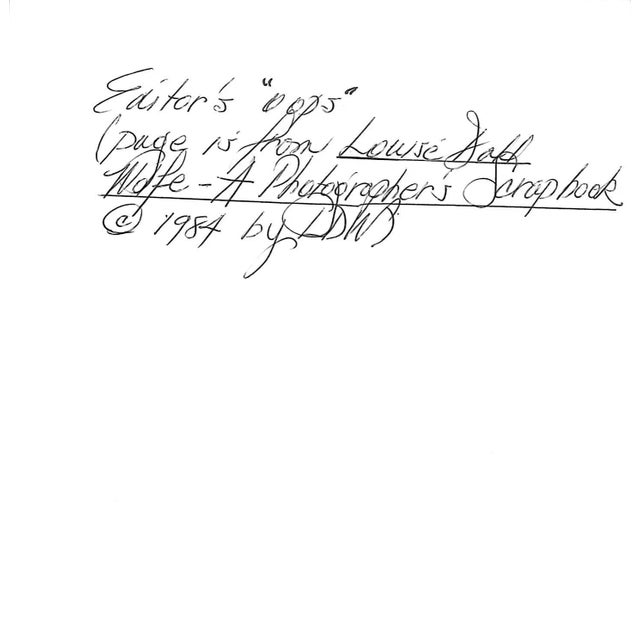 Editor's "oops"
(page is from Louise Dahl
Wolfe - A Photographer's Scrapbook
© 1984 by LDW)